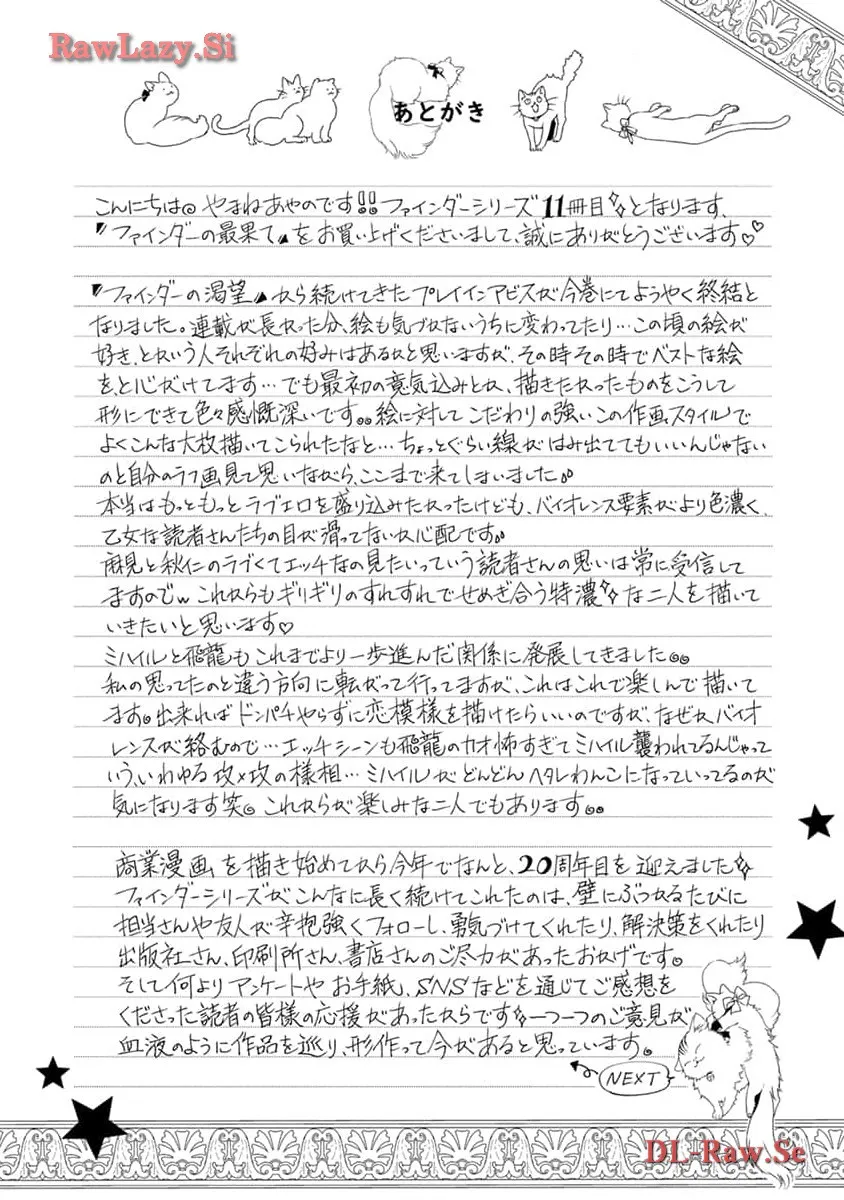 RawLazy.Si
あとがき
こんにちは。やまねあやのです!!ファインダーシリーズ11冊目となります、
『ファインダーの最果て』をお買い上げくださいまして、誠にありがとうございます♡♡
『ファインダーの渇望』から続けてきたプレイインアビスが今巻にてようやく終結と
なりました。連載が長かった分、絵も気づかないうちに変わってたり…この頃の絵が
好き、とかいう人それぞれの好みはあるかと思いますが、その時その時でベストな絵
を、と心がけてます…でも最初の意気込みとか、描きたかったものをこうして
形にできて色々感慨深いです。。絵に対してこだわりの強いこの作画スタイルで
よくこんな大枚描いてこられたなと…ちょっとぐらい線がはみ出ててもいいんじゃない
のと自分のラフ画見て思いながら、ここまで来てしまいました。
本当はもっともっとラブエロを盛り込みたかったけども、バイオレンス要素がより色濃く、
乙女な読者さんたちの目が滑ってないか心配です。
麻見と秋仁のラブくてエッチなの見たいっていう読者さんの思いは常に受信して
ますのでwこれからもギリギリのすれすれでせめぎ合う特濃な二人を描いて
いきたいと思います♡
ミハイルと飛龍もこれまでより一歩進んだ関係に発展してきました。。
私の思ってたのと違う方向に転がって行ってますが、これはこれで楽しんで描いて
ます。出来ればドンパチやらずに恋模様を描けたらいいのですが、なぜかバイオ
レンスが絡むので…エッチシーンも飛龍のカオ怖すぎてミハイル襲われてるんじゃって
いう、いわゆる攻×攻の様相…ミハイルがどんどんヘタレわんこになっていってるのが
気になります笑。これからが楽しみな二人でもあります。。
商業漫画を描き始めてから今年でなんと、20周年目を迎えました
ファインダーシリーズがこんなに長く続けてこれたのは、壁にぶつかるたびに
担当さんや友人が辛抱強くフォローし、勇気づけてくれたり、解決策をくれたり
出版社さん、印刷所さん、書店さんのご尽力があったおかげです。
そして何よりアンケートやお手紙、SNSなどを通じてご感想を
くださった読者の皆様の応援があったからです一つ一つのご意見が
血液のように作品を巡り、形作って今があると思っています。
NEXT
DL-Raw.Se